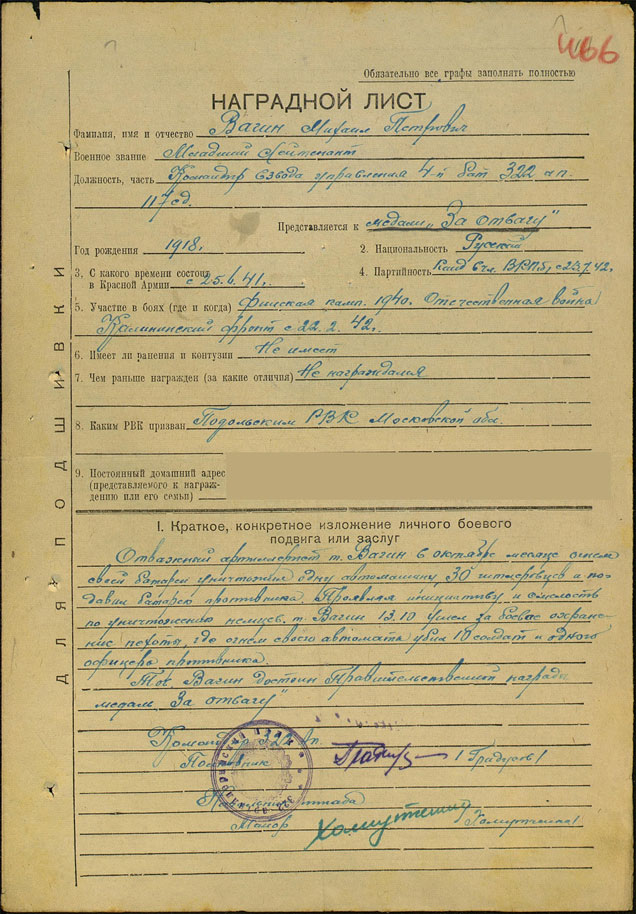 466
Обязательно все графы заполнять полностью
НАГРАДНОЙ ЛИСТ
Фамилия, имя и отчество Вагин Михаил Петрович
Военное звание Младший Лейтенант
Должность, часть Командир взвода управления 4-й бат 322 ап.
117 сд.
Представляется к медали „За отвагу"
Год рождения 1918. 2. Национальность Русский
3. С какого времени состоит
в Красной Армии с 25.6.41. 4. Партийность Канд в чл. ВКПб, с 23.7.42.
5. Участие в боях (где и когда) Финская камп. 1940. Отечественная война
Калининский фронт с 22.2.42.
6. Имеет ли ранения и контузии Не имеет
7. Чем раньше награжден (за какие отличия) Не награждался
8. Каким РВК призван Подольским РВК Московской обл.
9. Постоянный домашний адрес
(представляемого к награж-
дению или его семьи)
I. Краткое, конкретное изложение личного боевого
подвига или заслуг
Отважный артиллерист т. Вагин в октябре месяце огнем
своей батареи уничтожил одну автомашину, 30 гитлеровцев и по-
давил батарею противника. Проявляя инициативу и смелость
по уничтожению немцев. т. Вагин 13.10 ушел за боевое охране-
ние пехоты, где огнем своего автомата убил 10 солдат и одного
офицера противника.
Тов Вагин достоин Правительственной награды
медаль За отвагу"
Командир 322 ап.
Полковник /Градусов/
Начальник штаба
Майор Хомутинин
ДЛЯ ПОДШИВКИ